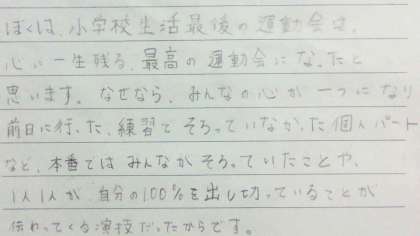 ぼくは、小学校生活最後の運動会は、
心に一生残る、最高の運動会になったと
思います。なぜなら、みんなの心が一つになり
前日に行った、練習でそろっていなかった個人パート
など、本番ではみんながそろっていたことや、
1人1人が、自分の100%を出し切っていることが
伝わってくる演技だったからです。